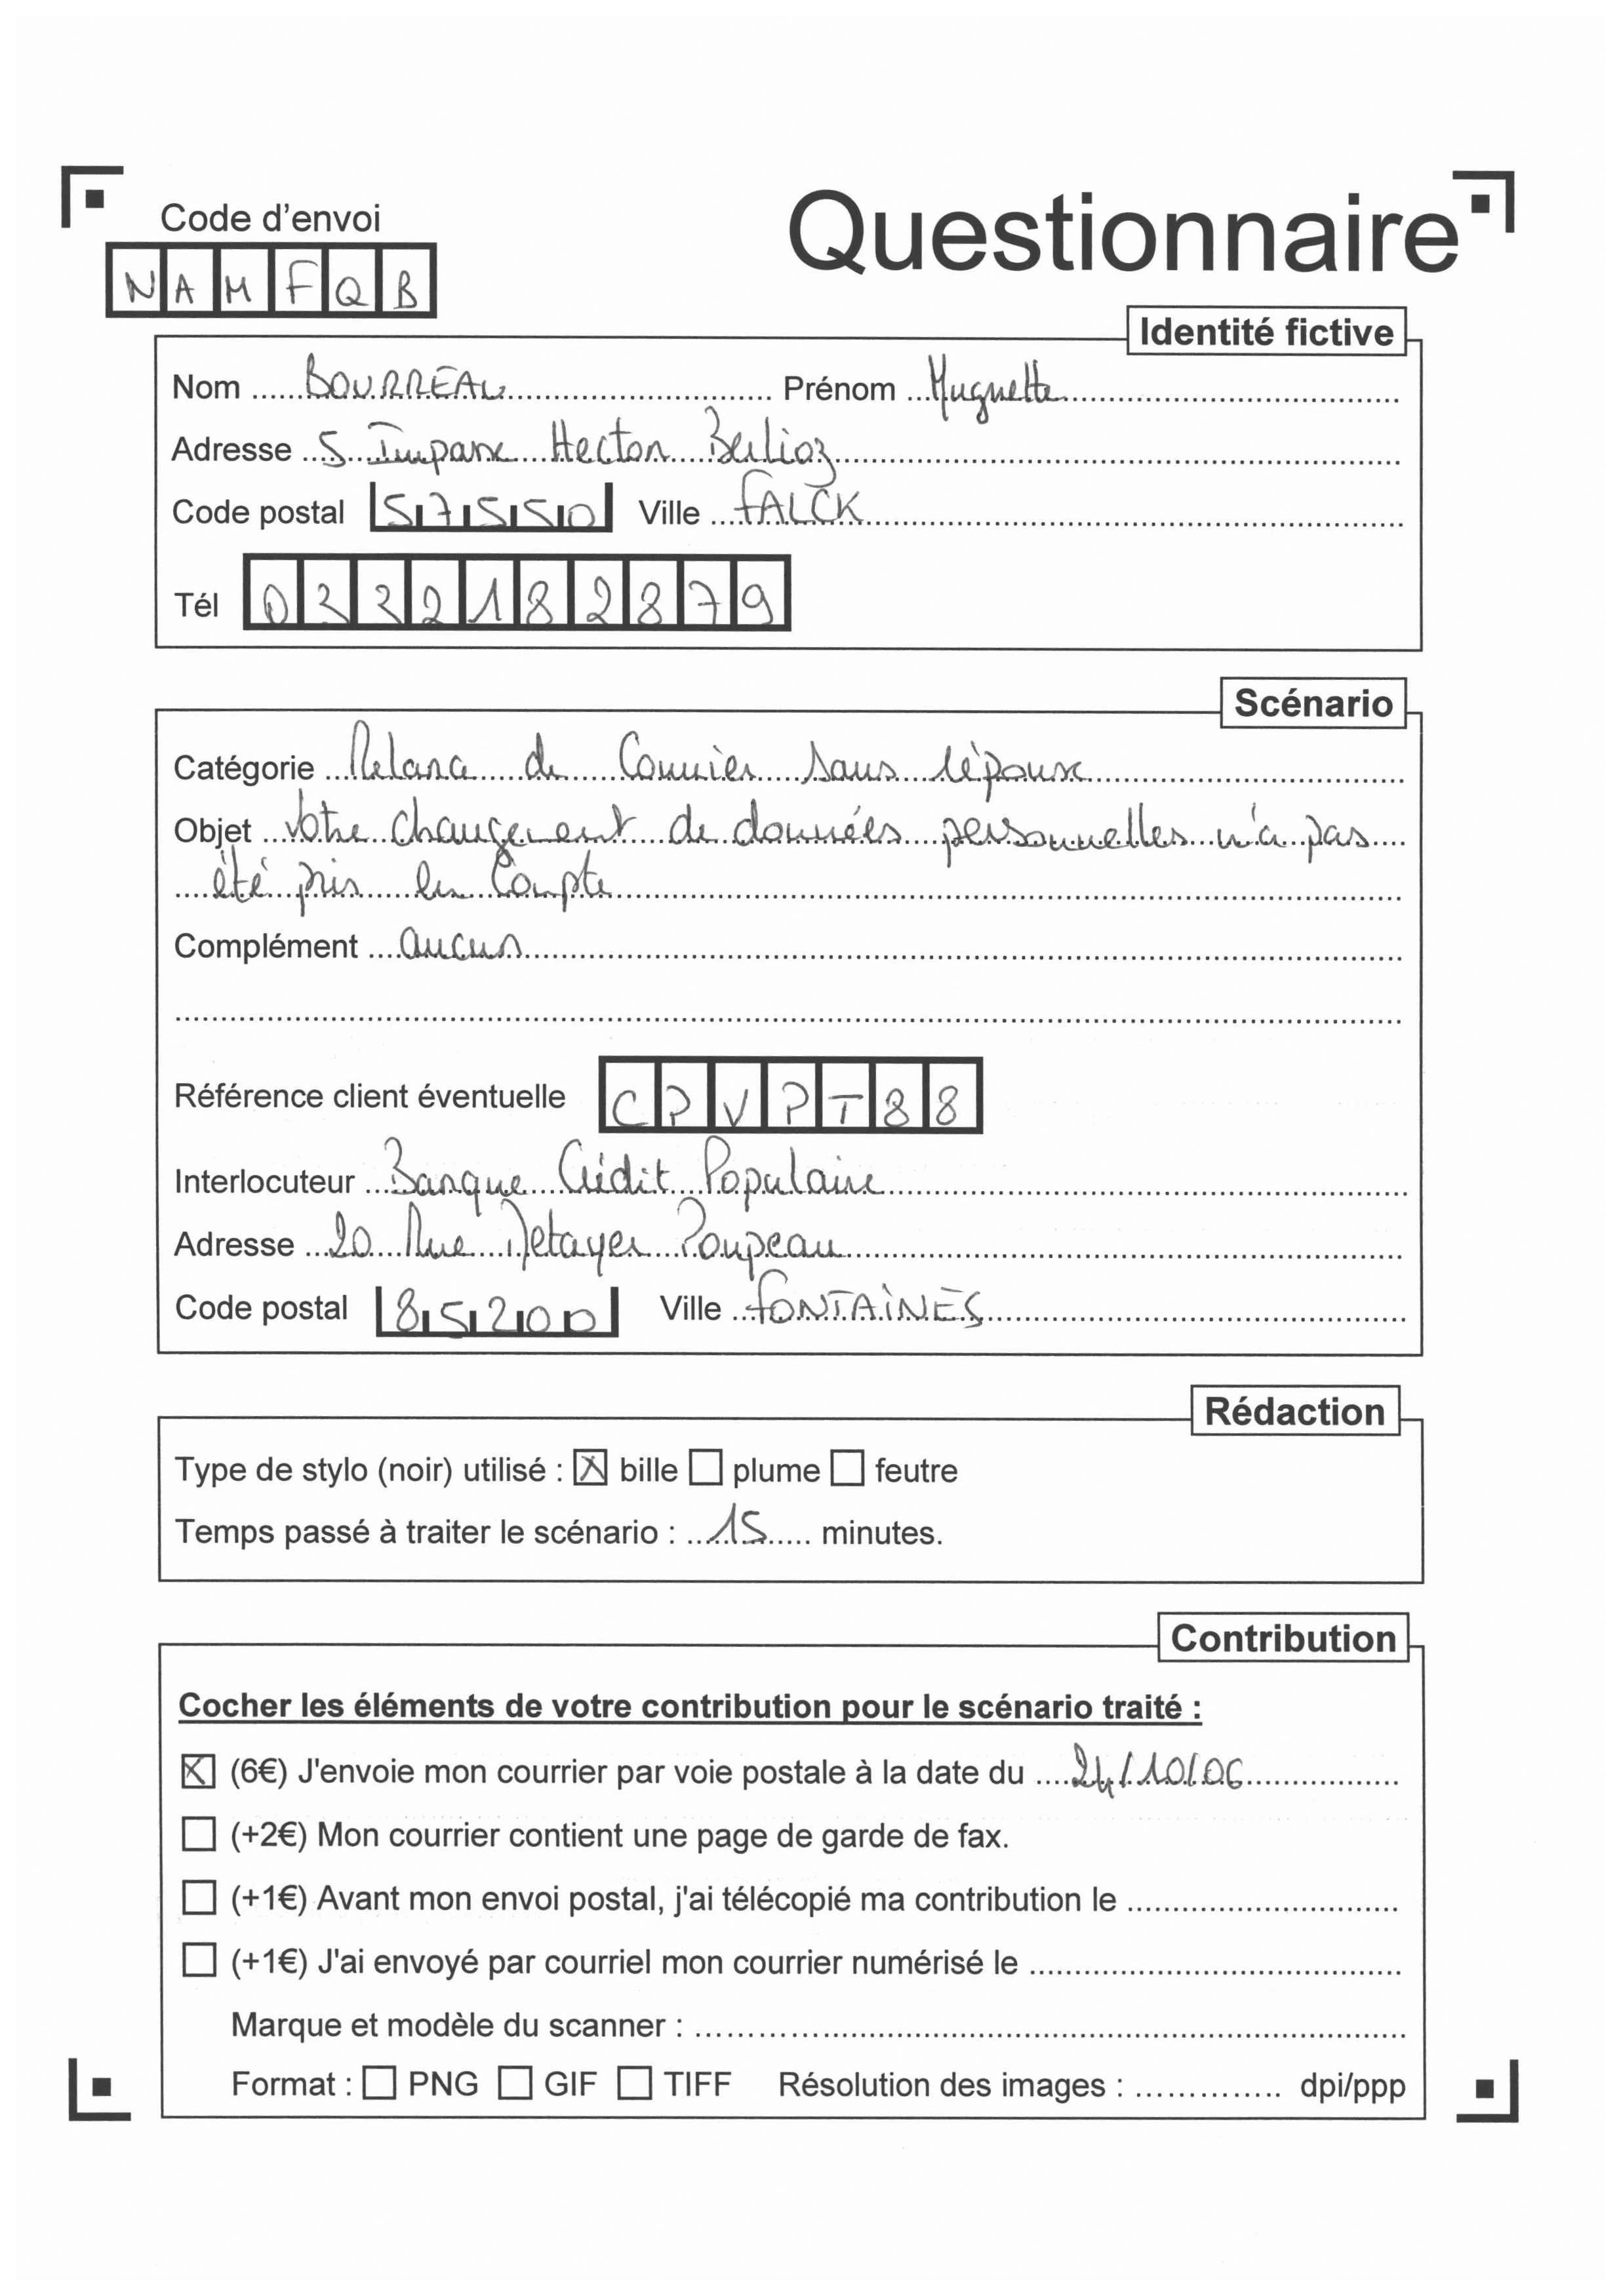 Code d'envoi
Questionnaire
NAMFQB
Identité fictive
Nom BOURREAU Prénom Huguette
Adresse 5 Impasse Hector Berlioz
Code postal 57550 Ville FALCK
Tél 0332182879
Scénario
Catégorie Relance de Courrier sans réponse
Objet Votre changement de données personnelles n'a pas
été pris en Compte
Complément aucun
Référence client éventuelle CPVPT88
Interlocuteur Banque Crédit Populaire
Adresse 20 Rue Poupeau
Code postal 85200 Ville FONTAINES
Rédaction
Type de stylo (noir) utilisé : ☒ bille ☐ plume ☐ feutre
Temps passé à traiter le scénario : 15 minutes.
Contribution
Cocher les éléments de votre contribution pour le scénario traité :
☒ (6€) J'envoie mon courrier par voie postale à la date du 24/10/06
☐ (+2€) Mon courrier contient une page de garde de fax.
☐ (+1€) Avant mon envoi postal, j'ai télécopié ma contribution le
☐ (+1€) J'ai envoyé par courriel mon courrier numérisé le
Marque et modèle du scanner :
Format : ☐ PNG ☐ GIF ☐ TIFF Résolution des images : dpi/ppp